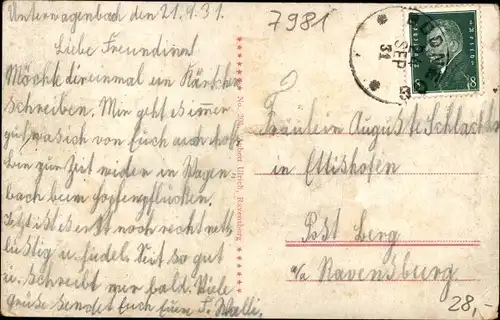 Unterwagenbach den 21.9.31.
Liebe Freundinnen!
Möchte dir einmal ein Kärtchen
schreiben. Mir geht es immer
gut was ich von Euch auch hoffe
bin zur Zeit wider in Wagen-
bach beim Hopfenpflücken.
Jetzt ist es erst noch recht nett
lustig u. fidel. Seit so gut
u. schreibt mir bald. Viele
Grüße sendet Euch Eure F. Walli.
Robert Ulrich, Ravensburg
7981
24
SEP
31
8
Fräulein Auguste Schlachter
in Ettishofen
Post Berg
o/a Ravensburg
28,-